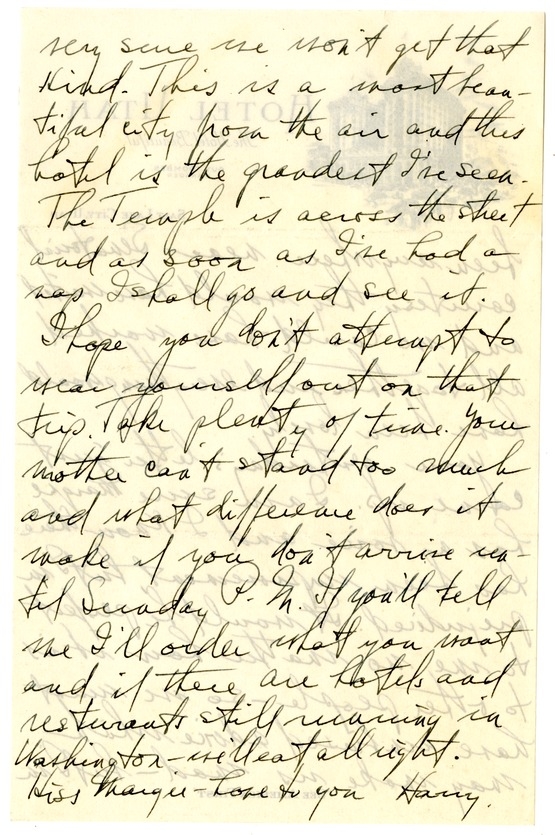 very sure we won't get that
kind. This is a most beau-
tiful city from the air and this
hotel is the grandest I've seen.
The Temple is across the street
and as soon as I've had a
nap I shall go and see it.
I hope you don't attempt to
wear yourself out on that
trip. Take plenty of time. Your
mother can't stand too much
and what difference does it
make if you don't arrive un-
til Sunday P.M. If you'll tell
me I'll order what you want
and if there are hotels and
resturants still running in
Washington - we'll eat all right.
Kiss Margie - Love to you Harry.